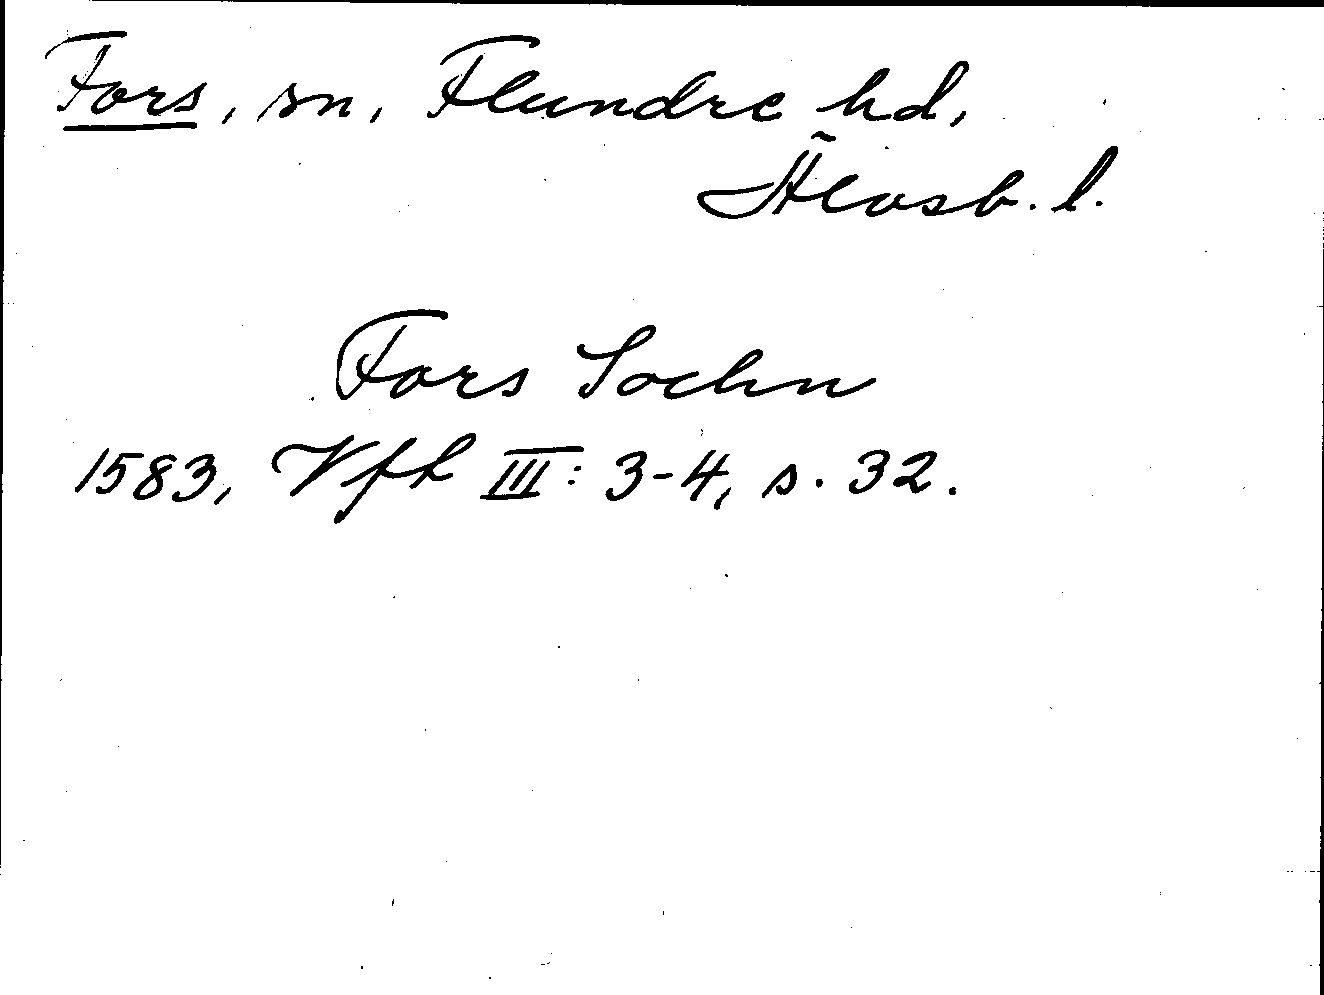 Fors, sn, Flundre hd,
Älvsb. l.
Fors Sochn
1583, Vfh III: 3-4, s. 32.